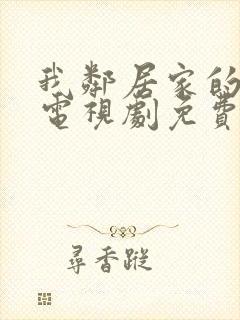 我鄰居家的
電視劇免費
尋香蹤